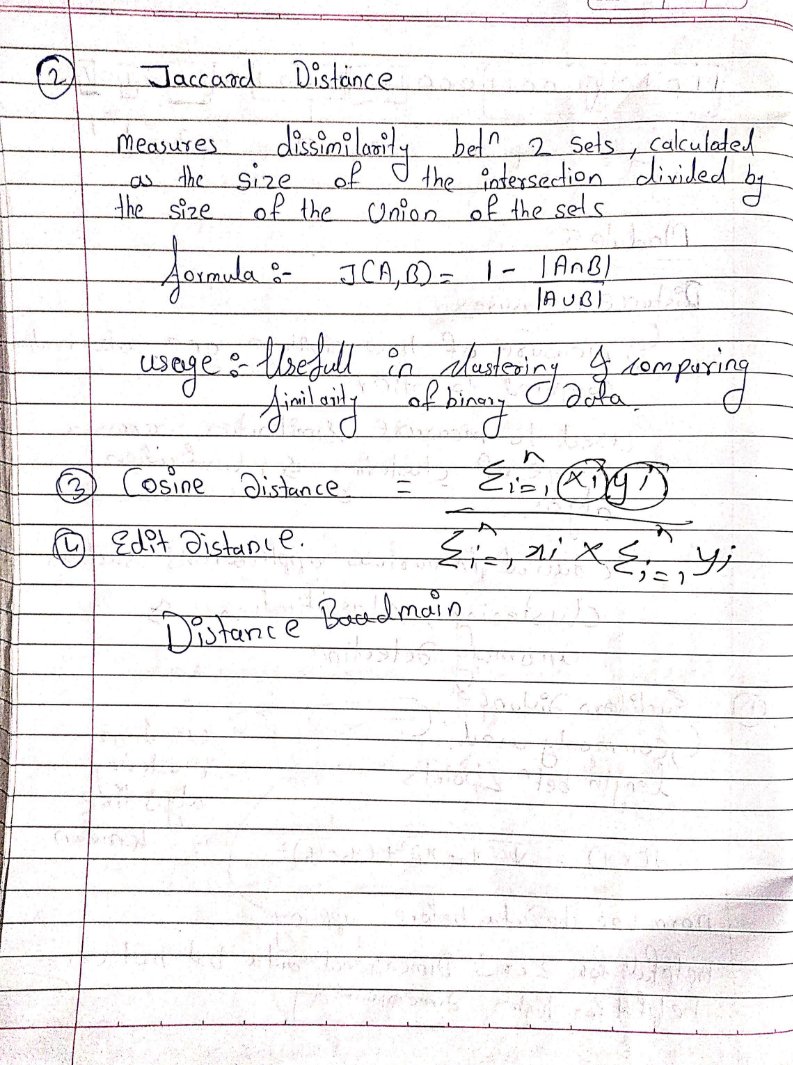 ② Jaccard Distance
measures dissimilarity betⁿ 2 sets, calculated
as the size of the intersection divided by
the size of the Union of the sets
formula :- J(A,B) = 1 - |A∩B| / |A∪B|
usage :- Usefull in clustering & comparing
similarity of binary data.
③ Cosine distance = Σⁿi=1 xi yi
④ Edit distance. Σⁿi=1 xi × Σⁿi=1 yi
Distance